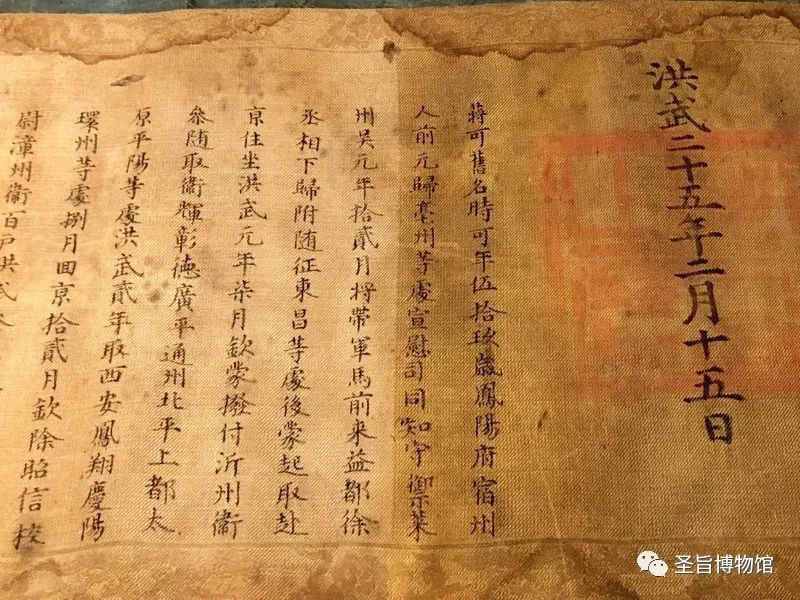 洪武二十五年二月十五日
蒋可舊名時可年伍拾玖歲鳳陽府宿州
人前元歸亳州等處宣慰司同知守禦萊
州吳元年拾貳月將帶軍馬前来益都徐
丞相下歸附随征東昌等處後蒙起取赴
京住坐洪武元年柒月欽蒙撥付沂州衛
叅随取衛輝彰德廣平通州北平上都太
原平陽等處洪武貳年取西安鳳翔慶陽
環州等處捌月回京拾貳月欽除昭信校
尉漳州衛百戸洪武
圣旨博物馆